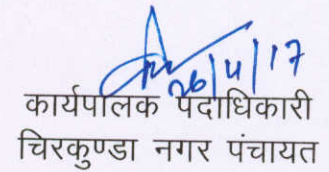 26/4/17
कार्यपालक पदाधिकारी
चिरकुण्डा नगर पंचायत